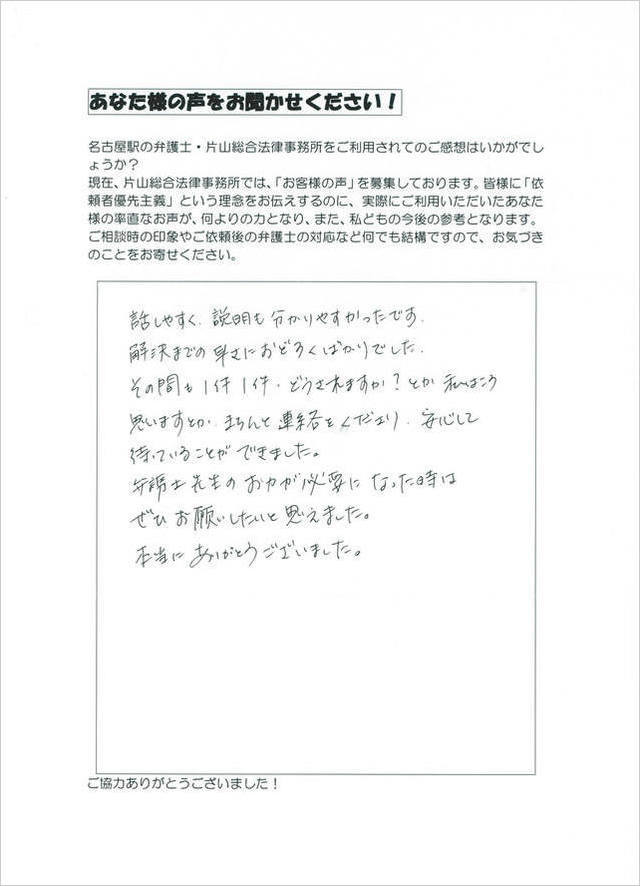 あなた様の声をお聞かせください！
名古屋駅の弁護士・片山総合法律事務所をご利用されてのご感想はいかがでし
ょうか？
現在、片山総合法律事務所では、「お客様の声」を募集しております。皆様に「依
頼者優先主義」という理念をお伝えするのに、実際にご利用いただいたあなた
様の率直なお声が、何よりの力となり、また、私どもの今後の参考となります。
ご相談時の印象やご依頼後の弁護士の対応など何でも結構ですので、お気づき
のことをお寄せください。
話しやすく、説明も分かりやすかったです。
解決までの早さにおどろくばかりでした。
その間も1件1件、どうされますか？とか 私はこう
思いますとか、きちんと連絡をくださり、安心して
待っていることができました。
弁護士先生のお力が必要になった時は
ぜひお願いしたいと思えました。
本当にありがとうございました。
ご協力ありがとうございました！